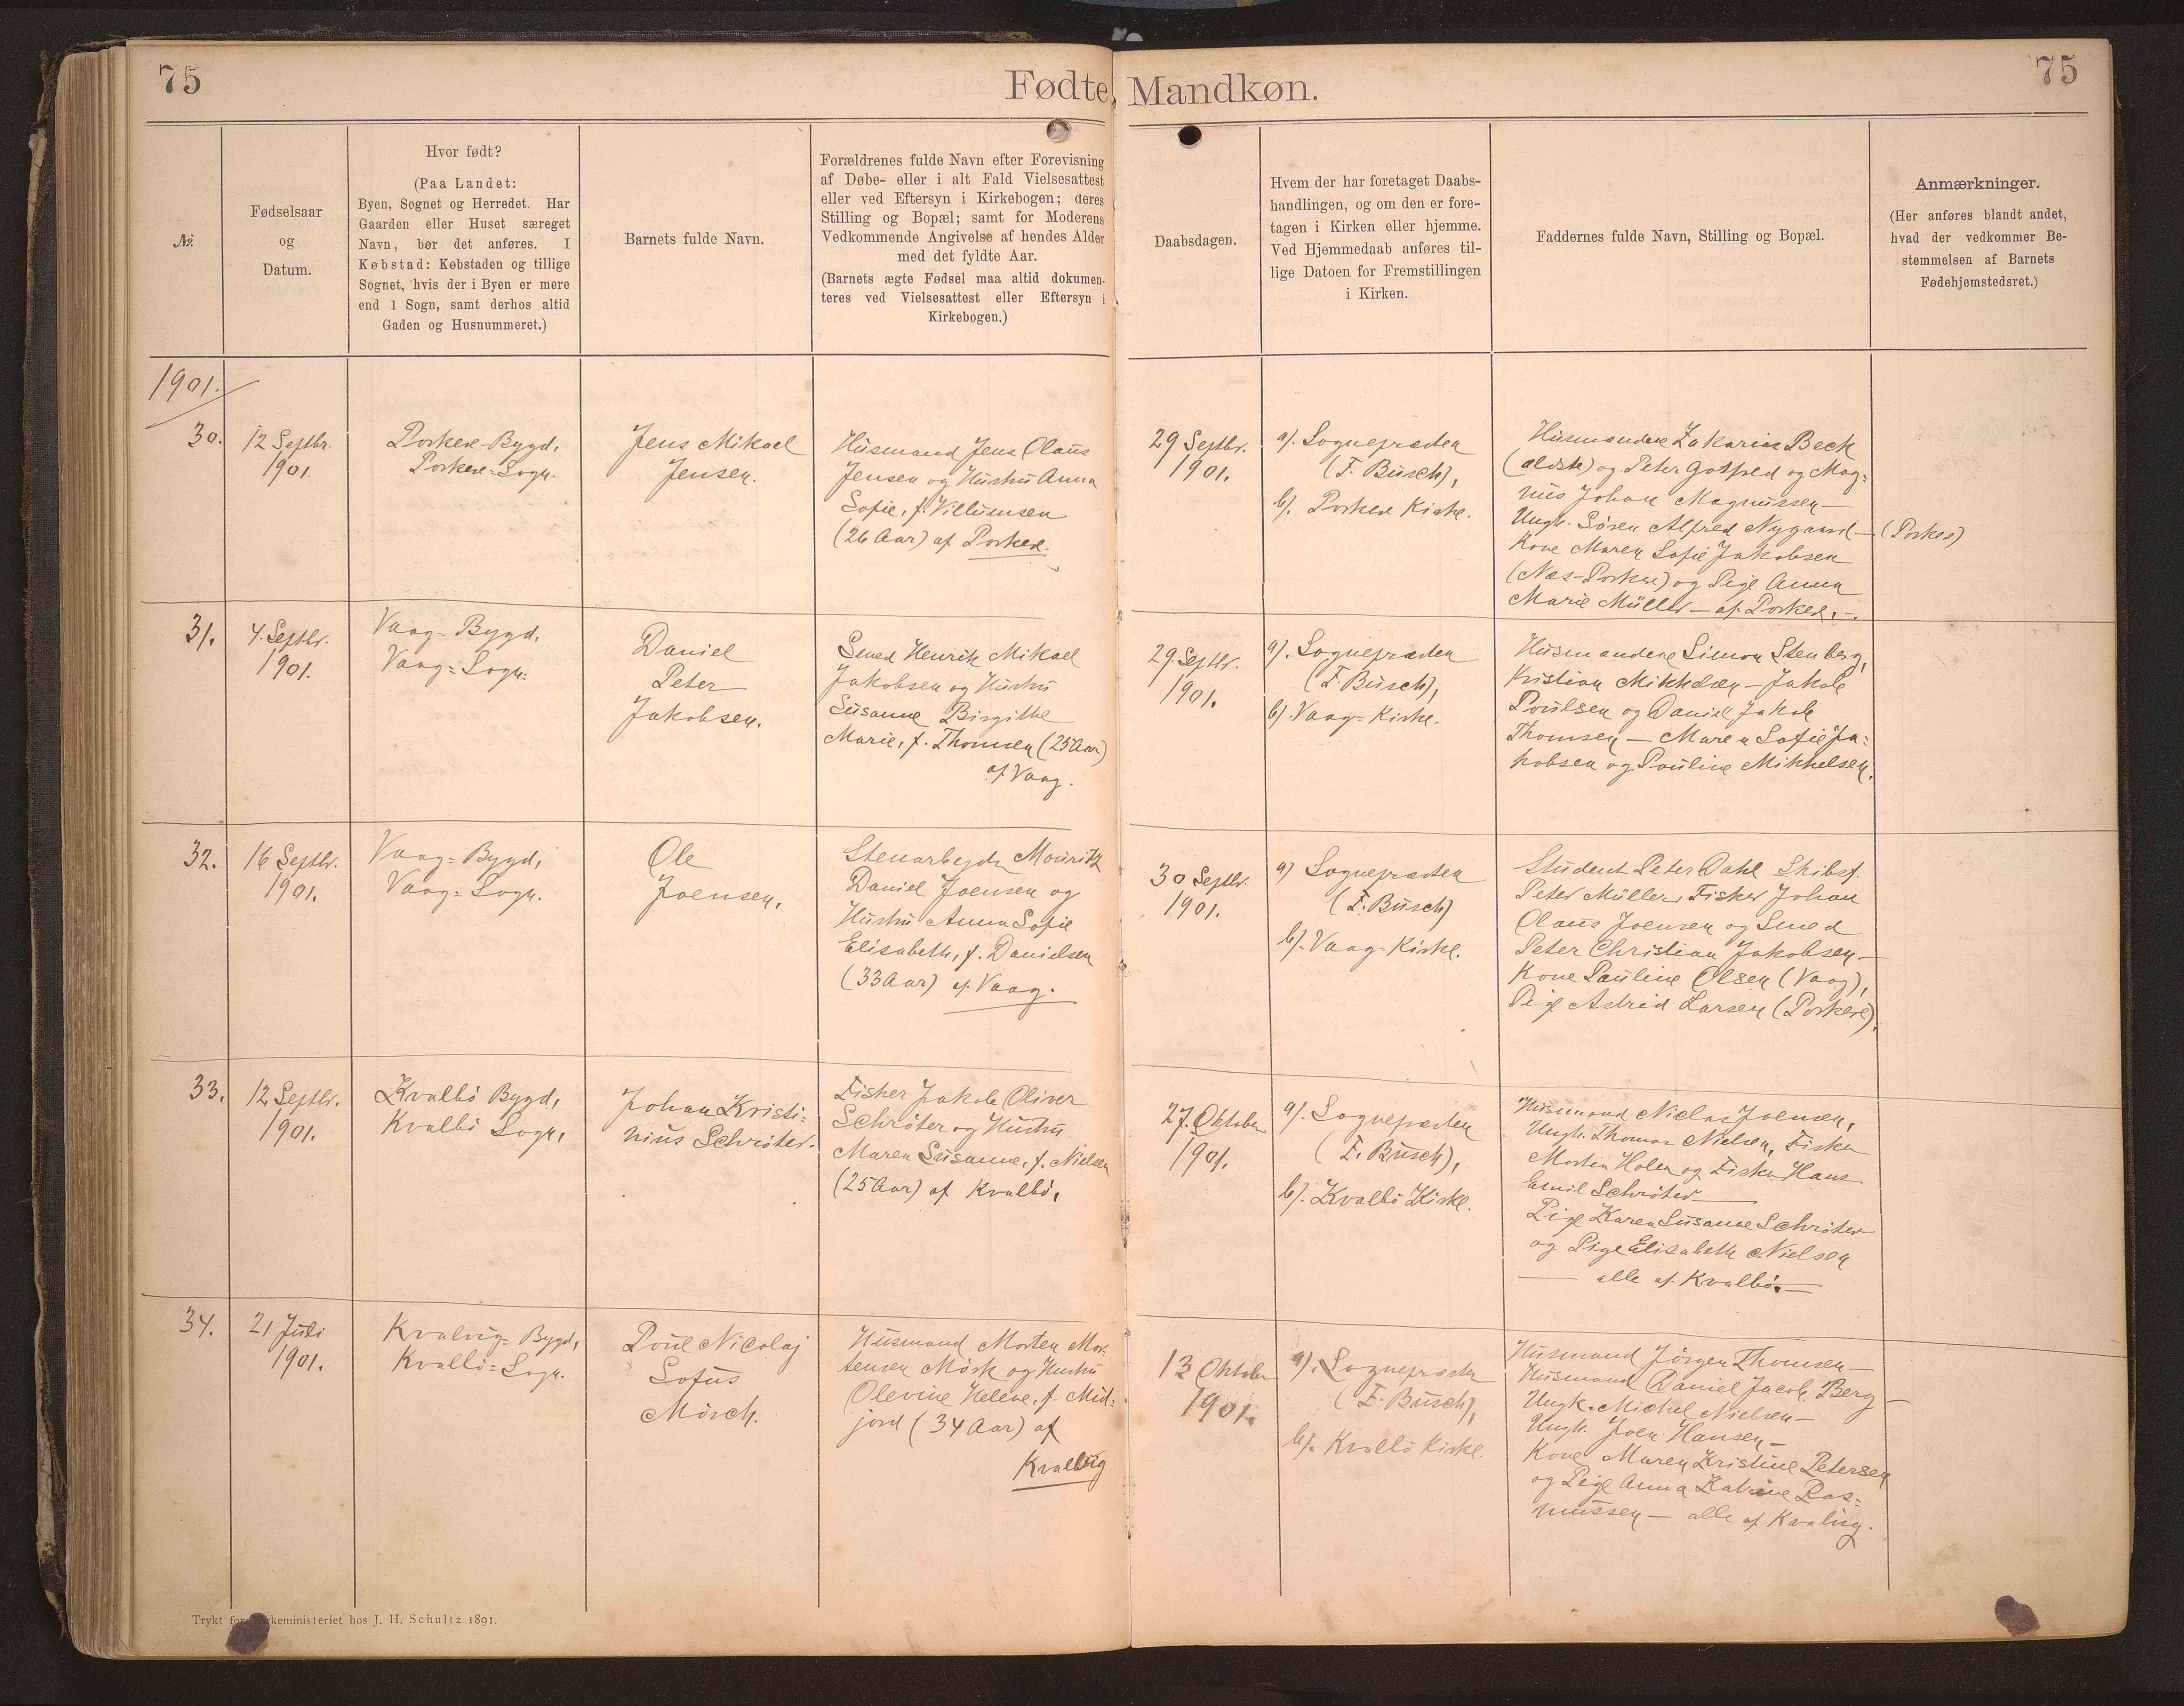 75
Fødte, Mandkøn.
75
№.
Fødselsaar
og
Datum.
Hvor født?
(Paa Landet:
Byen, Sognet og Herredet. Har
Gaarden eller Huset særeget
Navn, bør det anføres. I
Købstad: Købstaden og tillige
Sognet, hvis der i Byen er mere
end 1 Sogn, samt derhos altid
Gaden og Husnummeret.)
Barnets fulde Navn.
Forældrenes fulde Navn efter Forevisning
af Døbe- eller i alt Fald Vielsesattest
eller ved Eftersyn i Kirkebogen; deres
Stilling og Bopæl; samt for Moderens
Vedkommende Angivelse af hendes Alder
med det fyldte Aar.
(Barnets ægte Fødsel maa altid dokumen-
teres ved Vielsesattest eller Eftersyn i
Kirkebogen.)
Daabsdagen.
Hvem der har foretaget Daabs-
handlingen, og om den er fore-
tagen i Kirken eller hjemme.
Ved Hjemmedaab anføres til-
lige Datoen for Fremstillingen
i Kirken.
Faddernes fulde Navn, Stilling og Bopæl.
Anmærkninger.
(Her anføres blandt andet,
hvad der vedkommer Be-
stemmelsen af Barnets
Fødehjemstedsret.)
1901.
30.
12 Septbr.
1901.
Porkere-Bygd,
Porkere-Sogn.
Jens Mikael
Jensen.
Husmand Jens Olaus
Jensen og Hustru Anna
Sofie, f. Villumsen
(26 Aar) af Porkere.
29 Septbr.
1901.
a). Sognepræsten
(F. Busch),
b). Porkere Kirke.
Husmændene Zakarias Beck
(ældste) og Peter Gotfred og Mag=
nus Johan Magnussen —
Ungk. Søren Alfred Nygaard — (Porkere)
Kone Maren Sofie Jakobsen
(Næs-Porkere) og Pige Anna
Marie Müller — af Porkere. —
31.
4. Septbr.
1901.
Vaag-Bygd,
Vaag=Sogn.
Daniel
Peter
Jakobsen.
Smed Henrik Mikael
Jakobsen og Hustru
Susanne Birgithe
Marie, f. Thomsen (25 Aar)
af Vaag.
29 Septbr.
1901.
a). Sognepræsten
(F. Busch),
b). Vaag-Kirke.
Husmændene Simon Stenberg,
Kristian Mikkelsen — Jakob
Poulsen og Daniel Jakob
Thomsen — Maren Sofie Ja=
kobsen og Pouline Mikkelsen.
32.
16 Septbr.
1901.
Vaag=Bygd,
Vaag=Sogn.
Ole
Joensen.
Stenarbejder Mouritz
Daniel Joensen og
Hustru Anna Sofie
Elisabeth, f. Danielsen
(33 Aar) af Vaag.
30 Septbr.
1901.
a) Sognepræsten
(F. Busch)
b). Vaag-Kirke.
Student Peter Dahl Skibsf.
Peter Müller, Fisker Johan
Olaus Joensen og Smed
Peter Christian Jakobsen —
Kone Pauline Olsen (Vaag),
Pige Astrid Larsen (Porkere).
33.
12 Septbr.
1901.
Kvalbö Bygd,
Kvalbö Sogn,
Johan Kristi=
nius Schröter.
Fisker Jakob Oliver
Schröter og Hustru
Maren Susanne, f. Nielsen
(25 Aar) af Kvalbö.
27. Oktober
1901.
a). Sognepræsten
(F. Busch),
b). Kvalbö Kirke.
Husmand Niclas Joensen,
Ungk. Thomas Nielsen, Fisker
Morten Holm og Fisker Hans
Emil Schröter —
Pige Karen Susanne Schröter
og Pige Elisabeth Nielsen
— alle af Kvalbö. —
34.
21 Juli
1901.
Kvalvig=Bygd,
Kvalbö=Sogn.
Poul Nicolaj
Sofus
Mörch.
Husmand Morten Mor-
tensen Mörk og Hustru
Olevine Helene, f. Mid=
jord (34 Aar) af
Kvalvig
13 Oktober
1901.
a). Sognepræsten
(F. Busch),
b). Kvalbö Kirke.
Husmand Jörgen Thomsen —
Husmand Daniel Jacob Berg —
Ungk. Michel Nielsen —
Ungk. Joen Hansen —
Kone Maren Kristine Petersen
og Pige Anna Katrine Ras=
mussen — alle af Kvalvig.
Trykt for Kirkeministeriet hos J. H. Schultz 1891.